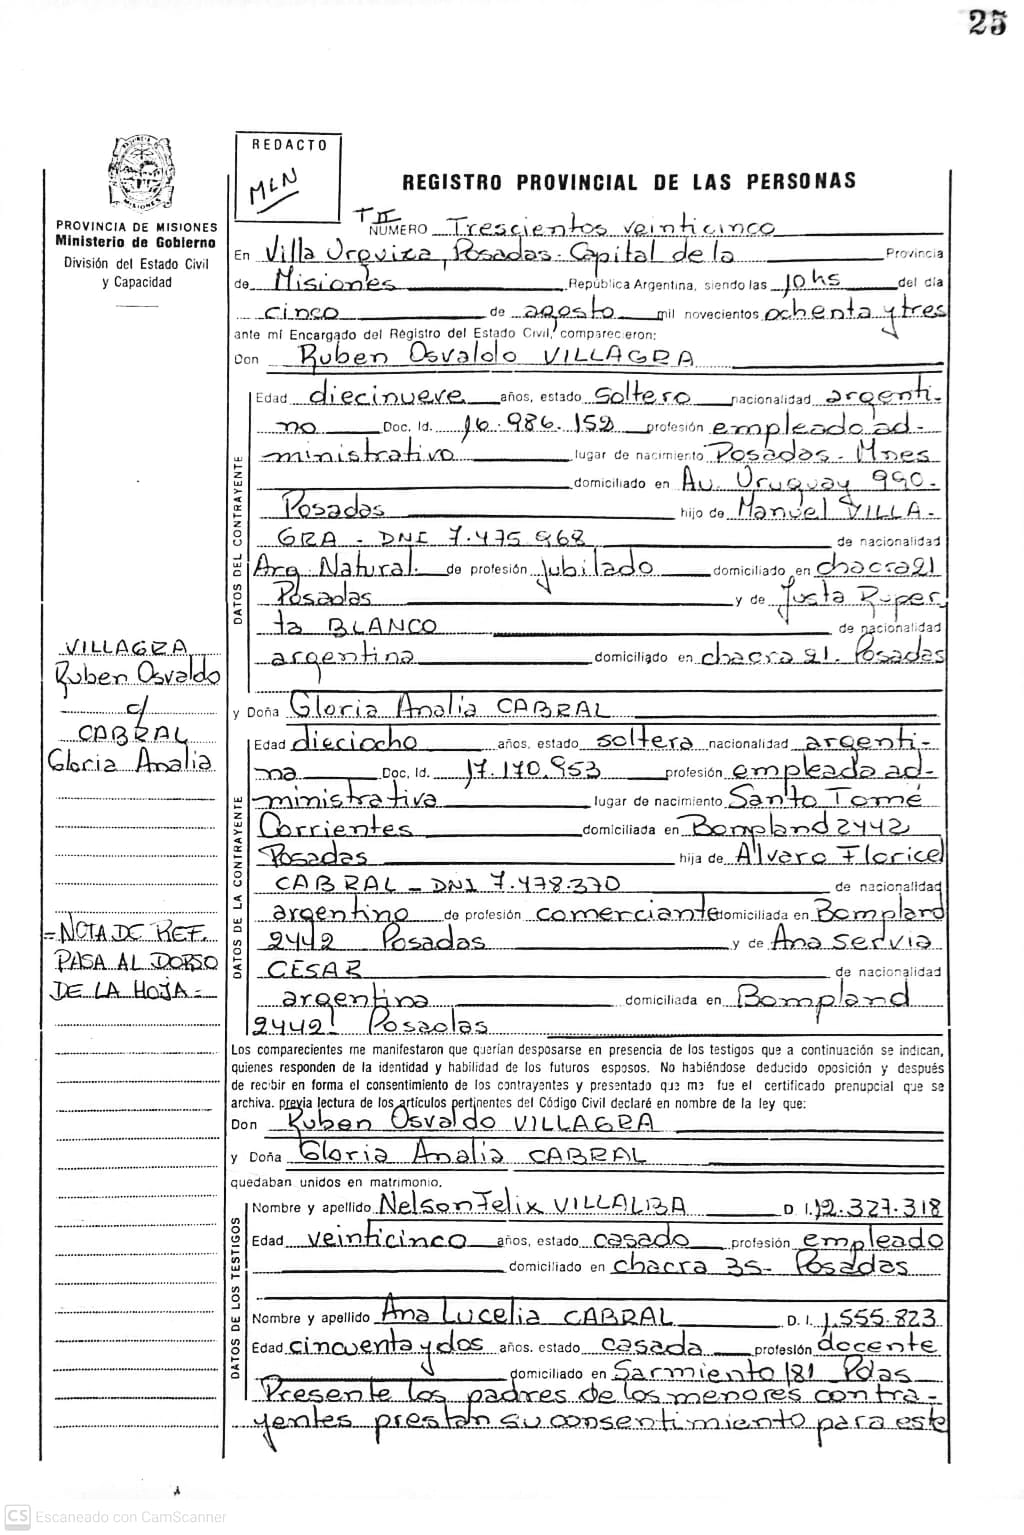 25
REDACTO
MLN
REGISTRO PROVINCIAL DE LAS PERSONAS
PROVINCIA DE MISIONES
Ministerio de Gobierno
División del Estado Civil
y Capacidad
T II
NUMERO Trescientos veinticinco
En Villa Urquiza, Posadas. Capital de la Provincia
de Misiones República Argentina, siendo las 10hs del día
cinco de agosto mil novecientos ochenta y tres
ante mí Encargado del Registro del Estado Civil, comparecieron:
Don Ruben Osvaldo VILLAGRA
DATOS DEL CONTRAYENTE
Edad diecinueve años, estado soltero nacionalidad argenti-
no Doc. Id. 16.986.152 profesión empleado ad-
ministrativo lugar de nacimiento Posadas - Mnes
domiciliado en Av. Uruguay 990-
Posadas hijo de Manuel VILLA-
GRA - DNI 7.475.968 de nacionalidad
Arg. Natural. de profesión jubilado domiciliado en chacra 21
Posadas y de Justa Ruper
ta BLANCO de nacionalidad
argentina domiciliado en chacra 21. Posadas
VILLAGRA
Ruben Osvaldo
c/
CABRAL
Gloria Analia
y Doña Gloria Analia CABRAL
DATOS DE LA CONTRAYENTE
Edad dieciocho años, estado soltera nacionalidad argenti-
na Doc. Id. 17.170.953 profesión empleada ad-
ministrativa lugar de nacimiento Santo Tomé
Corrientes domiciliada en Bompland 2442
Posadas hija de Alvaro Floricel
CABRAL - DNI 7.478.370 de nacionalidad
argentino de profesión comerciante domiciliada en Bompland
2442 Posadas y de Ana Servia
CESAR de nacionalidad
argentina domiciliada en Bompland
2442 Posadas
=NOTA DE REF.
PASA AL DORSO
DE LA HOJA=
Los comparecientes me manifestaron que querían desposarse en presencia de los testigos que a continuación se indican,
quienes responden de la identidad y habilidad de los futuros esposos. No habiéndose deducido oposición y después
de recibir en forma el consentimiento de los contrayentes y presentado que me fue el certificado prenupcial que se
archiva. previa lectura de los artículos pertinentes del Código Civil declaré en nombre de la ley que:
Don Ruben Osvaldo VILLAGRA
y Doña Gloria Analia CABRAL
quedaban unidos en matrimonio.
DATOS DE LOS TESTIGOS
Nombre y apellido Nelson Felix VILLALBA D I. 12.327.318
Edad veinticinco años, estado casado profesión empleado
domiciliado en chacra 35- Posadas
Nombre y apellido Ana Lucelia CABRAL D. I. 1.555.823
Edad cincuenta y dos años. estado casada profesión docente
domiciliado en Sarmiento 181 Pdas
Presente los padres de los menores contra-
yentes prestan su consentimiento para este
CS Escaneado con CamScanner